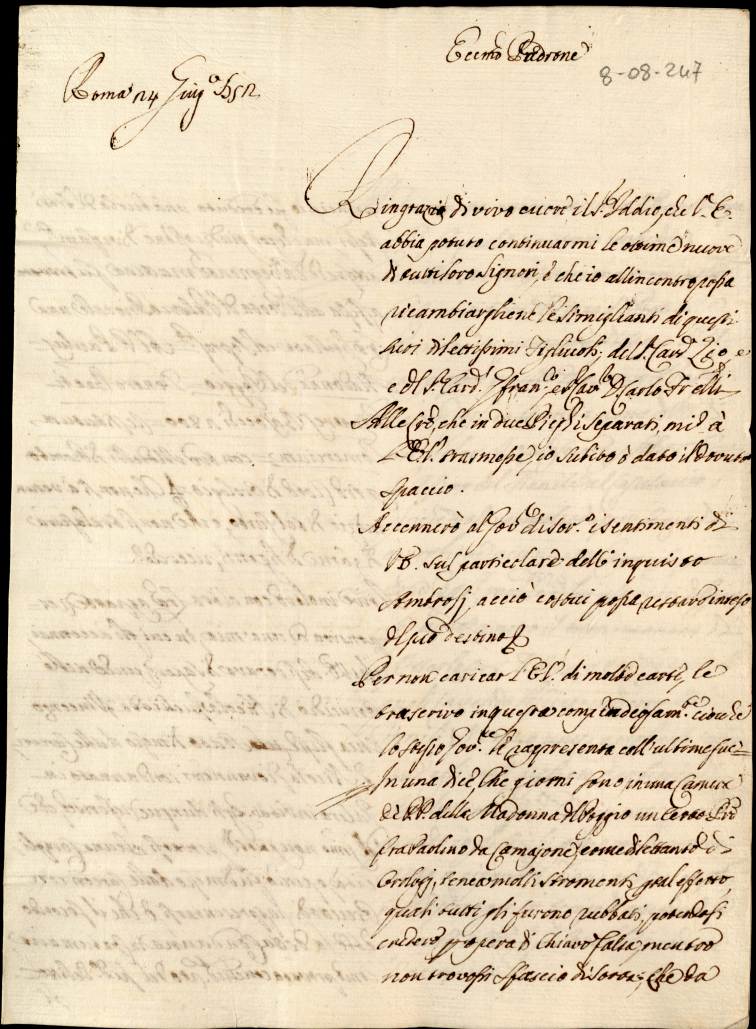 Eccmo Padrone
8-08-247
Roma 24 Giugo 1752
Ringrazio di vivo cuore il Sr Iddio, che V. E.
abbia potuto continuarmi le ottime nuove
di tutti loro Signori, e che io all'incontro possa
ricambiarghene le simiglianti di questi
suoi dilettissimi Figlivoli, del Sr Card. Zio, e
e del Sr Card. e Carlo Fratelli
Alle che in due separati, mi à
V. E. trasmesse, io subito ò dato il dovuto
spaccio.
Accennerò al Govre di Sor.o i sentimenti di
V. E. sul particolare dell'inquisito
Ambrosj, acciò costui possa restarne inteso
del suo destino
Per non caricar l'E. V. di molte carte, le
trascrivo in questa compendiosamte ciocchè
lo stesso Govre le rappresenta coll'ultime sue
In una dice, che giorni sono in una Camera
de PP. della Madonna del Poggio un certo
fra Paolino da Camajone, come dilettante di
Orologj, tenea molti stromenti per l'effetto,
quali tutti gli furono rubbati, potendosi
credere per opera di Chiave falsa, mentre
non trovossi sfascio di sorte; che da